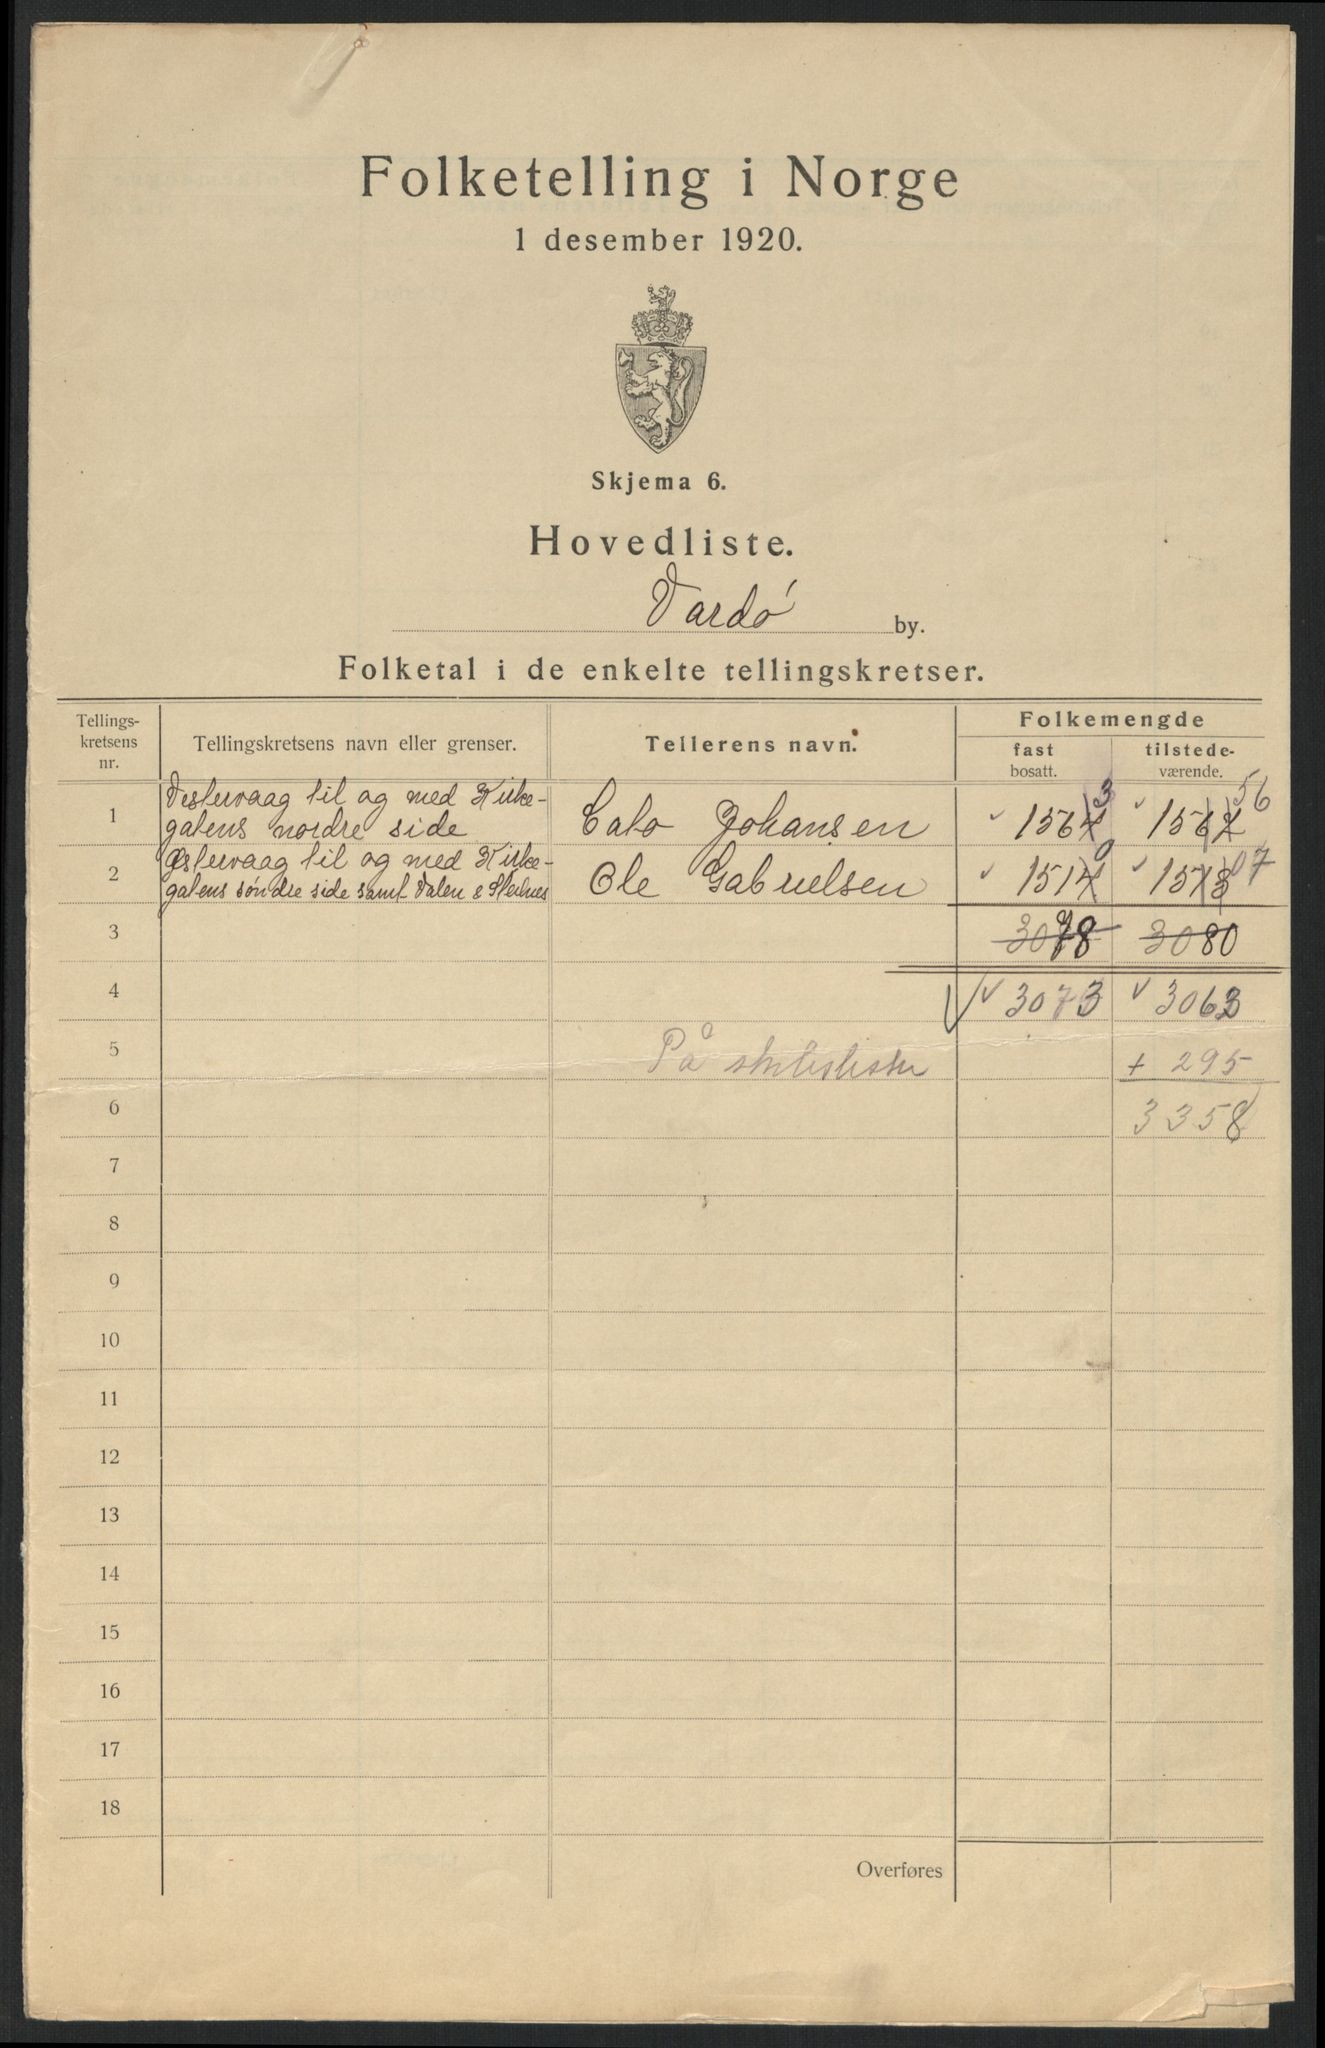 Folketelling i Norge
1 desember 1920.
Skjema 6.
Hovedliste.
Vardø by.
Folketal i de enkelte tellingskretser.
Tellings-
kretsens
nr.
Tellingskretsens navn eller grenser.
Tellerens navn.
Folkemengde
fast
bosatt.
tilstede-
værende.
1 Vestervaag til og med Kirke- 3 56
gatens nordre side Cato Johansen 1564 1567
2 Østervaag til og med Kirke- 0 07
gatens søndre side samt Dalen & Steilnes Ole Gabrielsen 1514 1513
3 3078 3080
4 3073 3063
5 På + 295
6 3358
7
8
9
10
11
12
13
14
15
16
17
18
Overføres